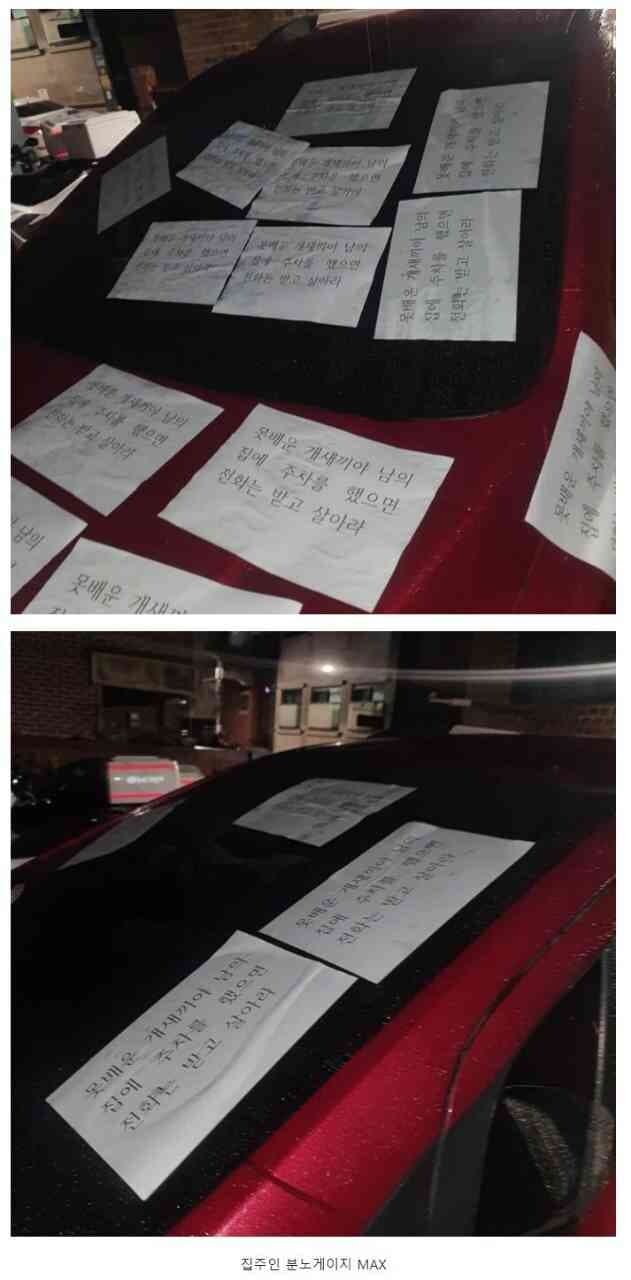 못배운 개새끼야 남의
집에 주차를 했으면
전화는 받고 살아라
못배운 개새끼야 남의
집에 주차를 했으면
전화는 받고 살아라
못배운 개새끼야 남의
집에 주차를 했으면
전화는 받고 살아라
못배운 개새끼야 남의
집에 주차를 했으면
전화는 받고 살아라
못배운 개새끼야 남의
집에 주차를 했으면
전화는 받고 살아라
못배운 개새끼야 남의
집에 주차를 했으면
전화는 받고 살아라
못배운 개새끼야 남의
집에 주차를 했으면
전화는 받고 살아라
못배운 개새끼야 남의
집에 주차를 했으면
남의
했으면
못배운 개새끼야 남의
못배운 개새끼야 남의
집에 주차를 했으면
전화는 받고 살아라
못배운 개새끼야 남의
집에 주차를 했으면
전화는 받고 살아라
집주인 분노게이지 MAX